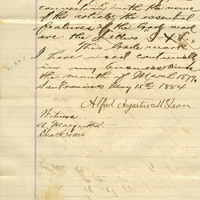 connection with the name
of the article, the essential
features of the trade mark
are the Letters I.X.L.
This trade mark
I have used continually
in my business since
the month of March 187
San Francisco May 15th 1884
Alfred Augustus McLean
Witness